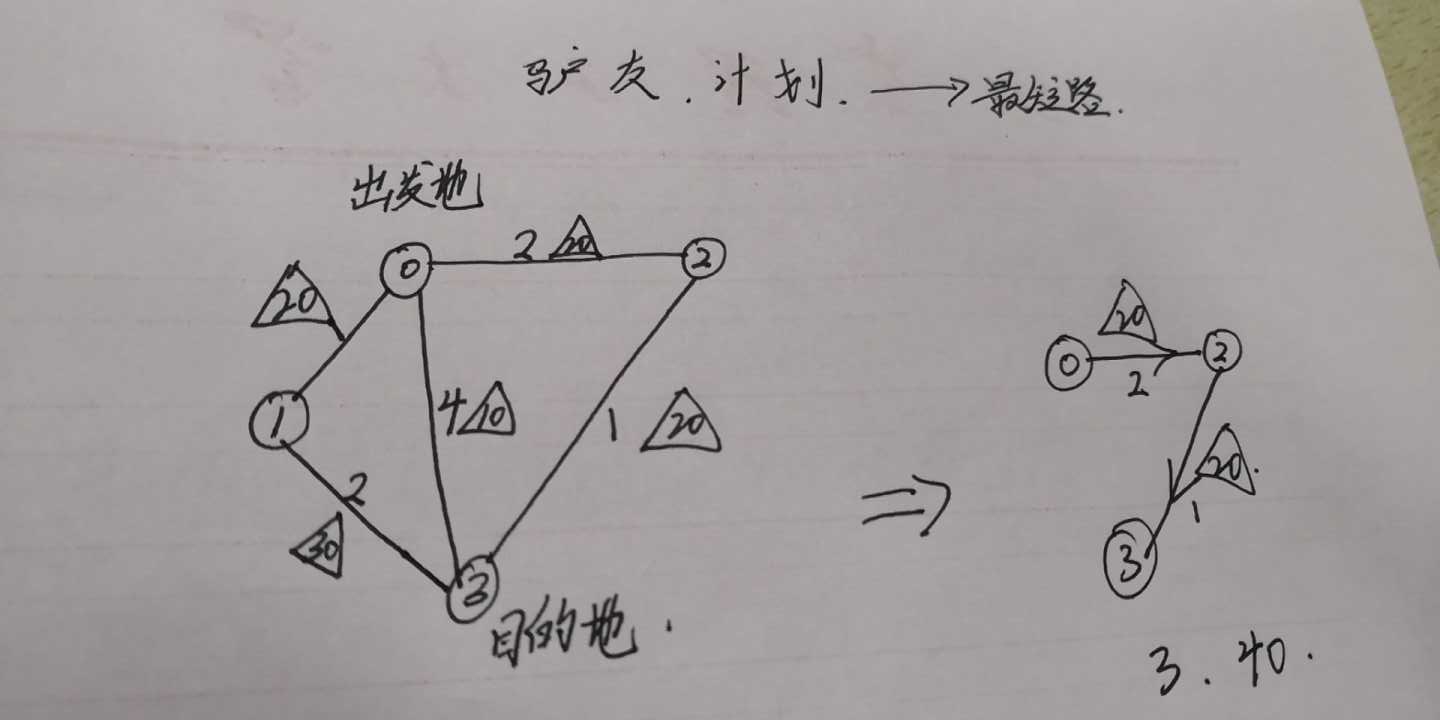 驴友.计划.→最短路.
出发地
2 20
0
2
20
1
4 10
1 20
2
30
3
目的地.
⇒
20
0
2
2
20.
1
3
3.40.